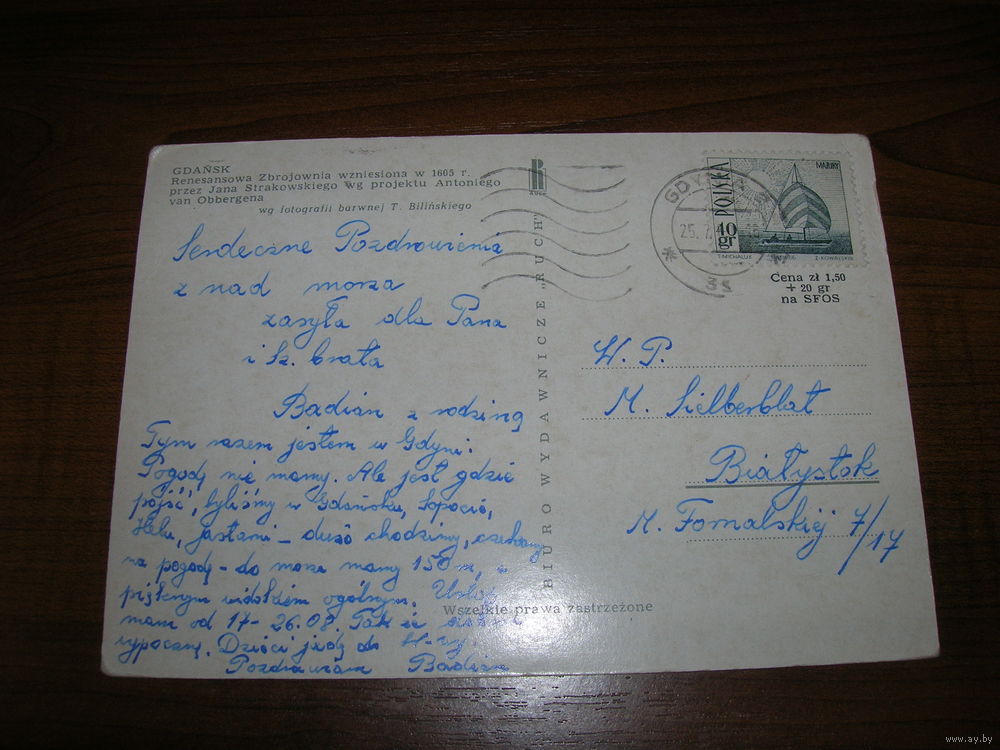 GDAŃSK
Renesansowa Zbrojownia wzniesiona w 1605 r.
przez Jana Strakowskiego wg projektu Antoniego
van Obbergena
wg fotografii barwnej T. Bilińskiego
Serdeczne Pozdrowienia
z nad morza
zasyła dla Pana
i Sz. brata
Badian z rodziną
Tym razem jestem w Gdyni.
Pogody nie mamy. Ale jest gdzie
pójść, byliśmy w Gdańsku, Sopocie,
Helu, Jastarni - dużo chodzimy, czekamy
na pogodę - do morza mamy 150 m, z
pięknym widokiem ogólnym.
mam od 17-26.08. Tak że
wypocznę. Dzieci jadą do
Pozdrawiam Badian
R
RUCH
BIURO WYDAWNICZE „RUCH"
Wszelkie prawa zastrzeżone
GDYNIA
25.7
POLSKA
40
gr
MAZURY
T. MICHALUK
Z. KOWALSKI
Cena zł 1,50
+ 20 gr
na SFOS
W. P.
M. Sielberblat
Białystok
M. Fornalskiej 7/17
www.ay.by